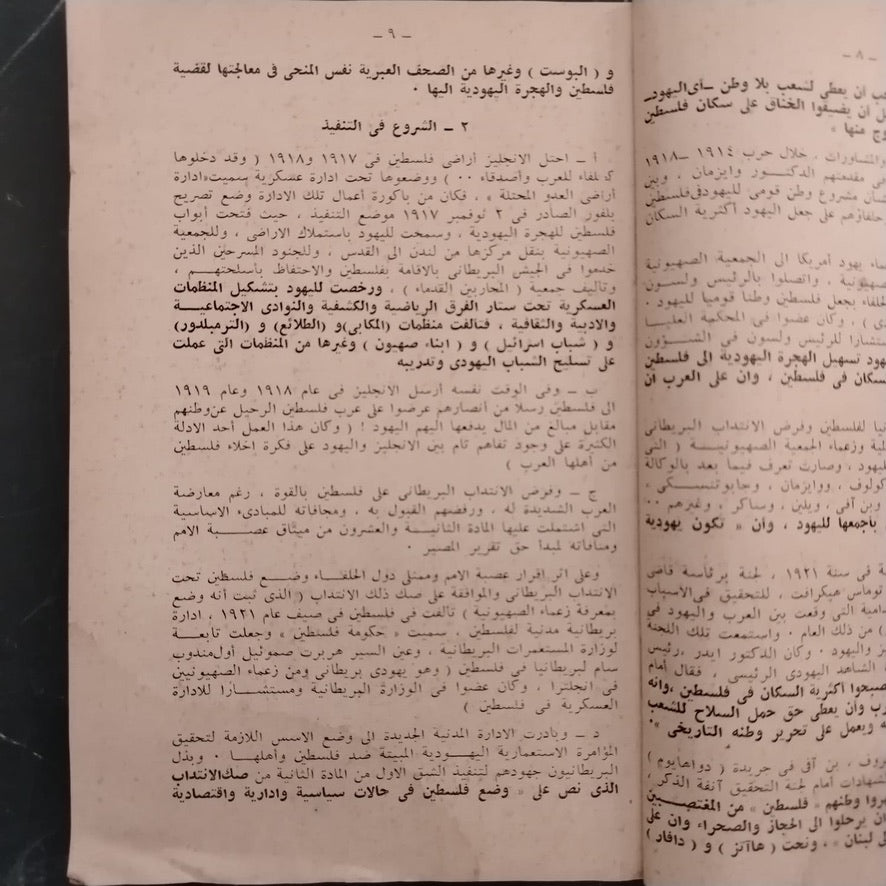 - ٩ -
و ( البوست ) وغيرها من الصحف العبرية نفس المنحى فى معالجتها لقضية
فلسطين والهجرة اليهودية اليها ٠
٢ - الشروع فى التنفيذ
أ - احتل الانجليز أراضى فلسطين فى ١٩١٧ و١٩١٨ ( وقد دخلوها
كحلفاء للعرب وأصدقاء ٠٠ ) ووضعوها تحت ادارة عسكرية سميت «ادارة
أراضى العدو المحتلة » ، فكان من باكورة أعمال تلك الادارة وضع تصريح
بلفور الصادر فى ٢ نوفمبر ١٩١٧ موضع التنفيذ ، حيث فتحت أبواب
فلسطين للهجرة اليهودية ، وسمحت لليهود باستملاك الاراضى ، وللجمعية
الصهيونية بنقل مركزها من لندن الى القدس ، وللجنود المسرحين الذين
خدموا فى الجيش البريطانى بالاقامة بفلسطين والاحتفاظ بأسلحتهم ،
وتأليف جمعية ( المحاربين القدماء ) ، ورخصت لليهود بتشكيل المنظمات
العسكرية تحت ستار الفرق الرياضية والكشفية والنوادى الاجتماعية
والادبية والثقافية ، فتألفت منظمات (المكابى)و (الطلائع) و (الترمبلدور)
و ( شباب اسرائيل ) و ( ابناء صهيون ) وغيرها من المنظمات التى عملت
على تسليح الشباب اليهودى وتدريبه
ب - وفى الوقت نفسه أرسل الانجليز فى عام ١٩١٨ وعام ١٩١٩
الى فلسطين رسلا من أنصارهم عرضوا على عرب فلسطين الرحيل عن وطنهم
مقابل مبالغ من المال يدفعها اليهم اليهود ! ( وكان هذا العمل أحد الادلة
الكثيرة على وجود تفاهم تام بين الانجليز واليهود على فكرة اخلاء فلسطين
من أهلها العرب )
ج - وفرض الانتداب البريطانى على فلسطين بالقوة ، رغم معارضة
العرب الشديدة له ، ورفضهم القبول به ، ومجافاته للمبادىء الاساسية
التى اشتملت عليها المادة الثانية والعشرون من ميثاق عصبة الامم
ومنافاته لمبدأ حق تقرير المصير ٠
وعلى اثر اقرار عصبة الامم وممثلى دول الحلفاء وضع فلسطين تحت
الانتداب البريطانى والموافقة على صك ذلك الانتداب ( الذى ثبت أنه وضع
بمعرفة زعماء الصهيونية ) تألفت فى فلسطين فى صيف عام ١٩٢١ ، ادارة
بريطانية مدنية لفلسطين ، سميت « حكومة فلسطين » وجعلت تابعة
لوزارة المستعمرات البريطانية ، وعين السير هربرت صموئيل أول مندوب
سام لبريطانيا فى فلسطين ( وهو يهودى بريطانى ومن زعماء الصهيونيين
فى انجلترا ، وكان عضوا فى الوزارة البريطانية ومستشارا للادارة
العسكرية فى فلسطين )
د - وبادرت الادارة المدنية الجديدة الى وضع الاسس اللازمة لتحقيق
المؤامرة الاستعمارية اليهودية المبيتة ضد فلسطين وأهلها ٠ وبذل
البريطانيون جهودهم لتنفيذ الشق الاول من المادة الثانية من صك الانتداب
الذى نص على « وضع فلسطين فى حالات سياسية وادارية واقتصادية
- ٨ -
أن يعطى لشعب بلا وطن -أى اليهود-
أن يضيقوا الخناق على سكان فلسطين
منها »
والمشاورات ، خلال حرب ١٩١٤ -١٩١٨
فى مقدمتهم الدكتور وايزمان ، وبين
مشروع وطن قومى لليهود فى فلسطين
على جعل اليهود أكثرية السكان
يهود أمريكا الى الجمعية الصهيونية
، واتصلوا بالرئيس ولسون
بجعل فلسطين وطنا قوميا لليهود ٠
) ، وكان عضوا فى المحكمة العليا
للرئيس ولسون فى الشؤون
تسهيل الهجرة اليهودية الى فلسطين
فى فلسطين ، وان على العرب ان
لفلسطين وفرض الانتداب البريطانى
وزعماء الجمعية الصهيونية ( التى
، وصارت تعرف فيما بعد بالوكالة
، ووايزمان ، وجابوتنسكى ،
وبن آفى ، ويلين ، وساكر ، وغيرهم ٠٠
بأجمعها لليهود ، وأن « تكون يهودية
فى سنة ١٩٢١ ، لجنة برئاسة قاضى
توماس هيكرافت ، للتحقيق فى الاسباب
التى وقعت بين العرب واليهود فى
) من ذلك العام ٠ واستمعت تلك اللجنة
واليهود ٠ وكان الدكتور ايدر ، رئيس
الشاهد اليهودى الرئيسى ، فقال أمام
أكثرية السكان فى فلسطين ، وانه
وأن يعطى حق حمل السلاح للشعب
ويعمل على تحرير وطنه التاريخى » ٠
، بن آفى فى جريدة ( دواهايوم )
أمام لجنة التحقيق آنفة الذكر ،
وطنهم « فلسطين » من المغتصبين
يرحلوا الى الحجاز والصحراء وان على
لبنان » ، ونحت ( هاآتز ) و ( دافار )